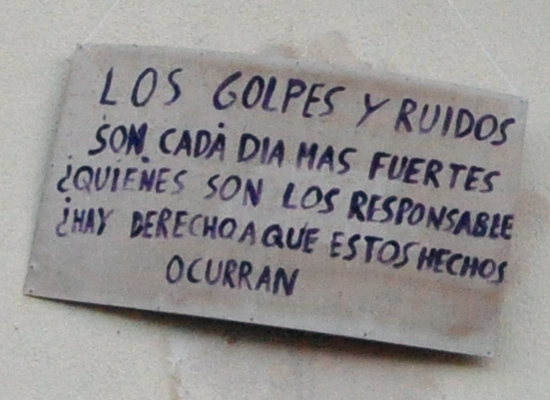 LOS GOLPES Y RUIDOS
SON CADA DIA MAS FUERTES
¿QUIENES SON LOS RESPONSABLE
¿HAY DERECHO A QUE ESTOS HECHOS
OCURRAN